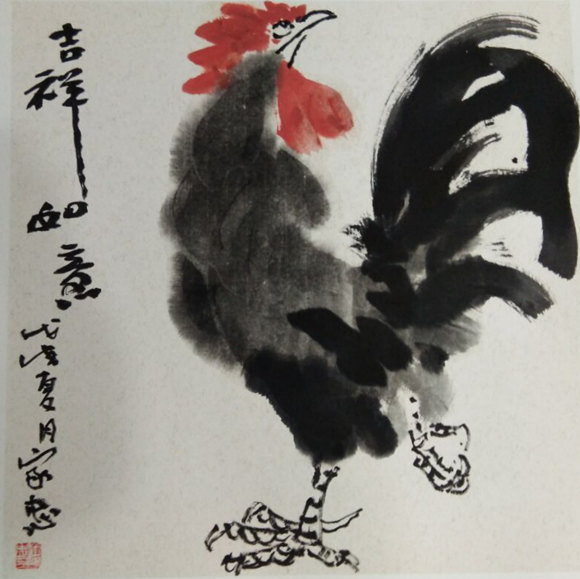 吉祥如意
戊戌夏月家惠